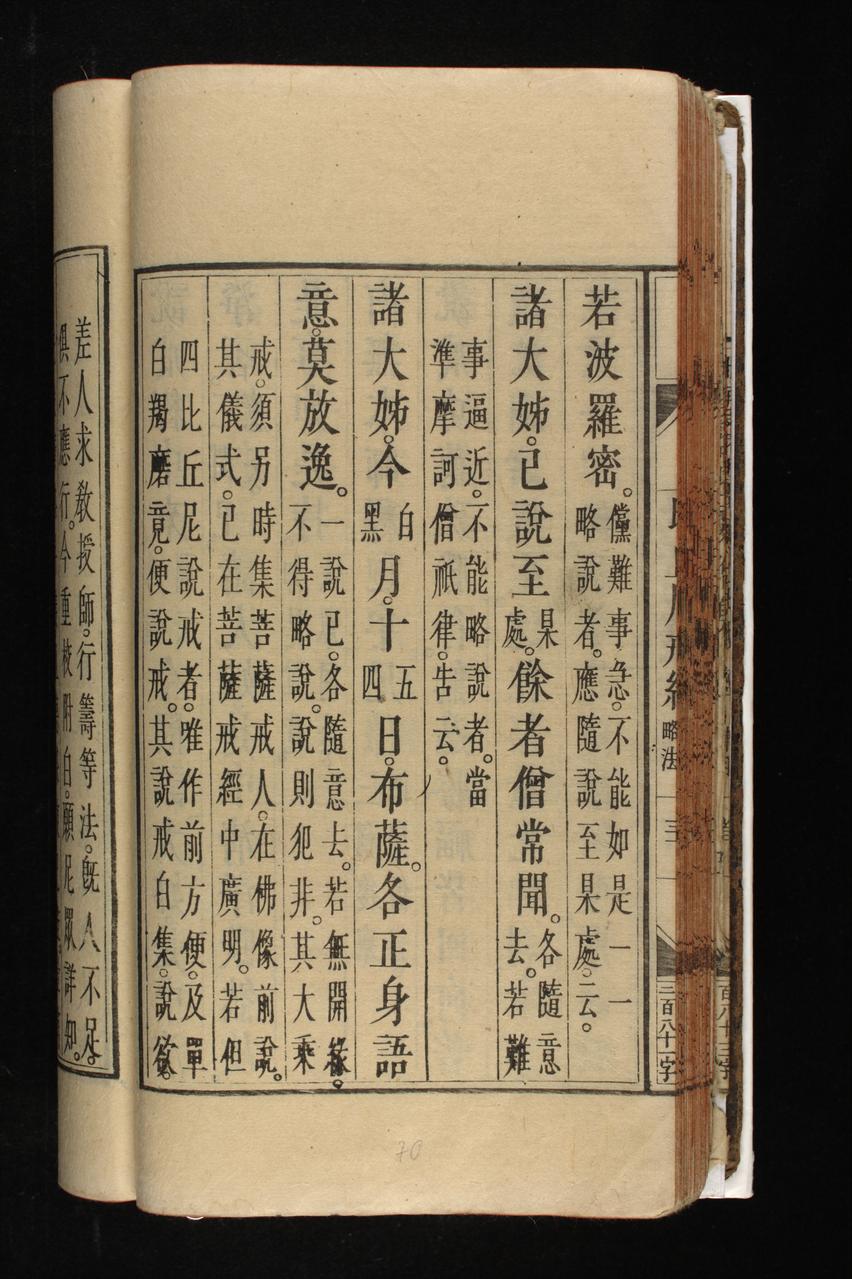 若波羅密。儻難事急。不能如是一一
略說者。應隨說至某處。云。
諸大姊。已說至某處。餘者僧常聞。各隨意
去。若難
事逼近。不能略說者。當
準摩訶僧祇律。告云。
諸大姊。今白黑月。十五四日。布薩。各正身語
意。莫放逸。一說已。各隨意去。若無開緣。
不得略說。說則犯非。其大乘
戒。須另時集菩薩戒人。在佛像前說。
其儀式。已在菩薩戒經中廣明。若但
四比丘尼說戒者。唯作前方便。及單
白羯磨竟。便說戒。其說戒白集。說欲。
差人求教授師。行籌等法。既人不足。
俱不應行。今重校附白。願尼眾詳知。
略法
三
三百八十一字
70